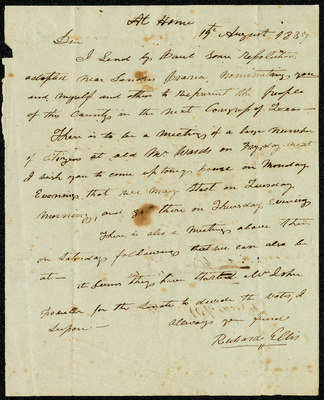 At Home
19th August 1837
Dr
I Send by Paul Some Resolutions
adopted near London Prairie, Nominating you
and myself and others to Represent the people
of this County in the next Congress of Texas —
There is to be a meeting of a large number
of Citizens at old Mr Wards on Fryday next
I wish you to come up to my house on Monday
Evening, that we may Start on Tuesday
morning, and go there on Thursday Evening
There is also a meeting above
on Saturday following that we can also be
at — it Seems they have Started Mr John
for the Senate to devide the votes, I
Supose — Always your friend
Richard Ellis